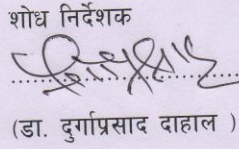 शोध निर्देशक
(डा. दुर्गाप्रसाद दाहाल )